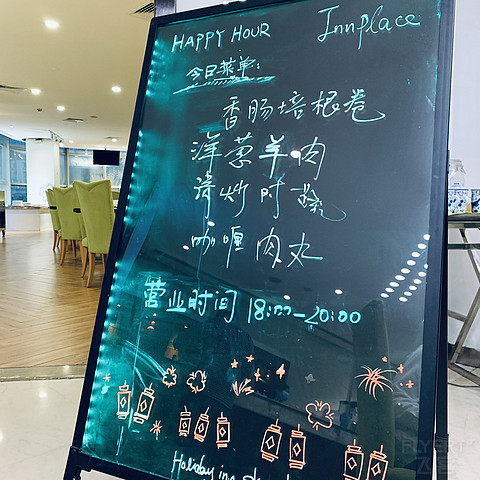 HAPPY HOUR Innplace
今日菜单:
香肠培根卷
洋葱羊肉
清炒时蔬
咖喱肉丸
营业时间 18:00-20:00
Holiday inn
FLYERT